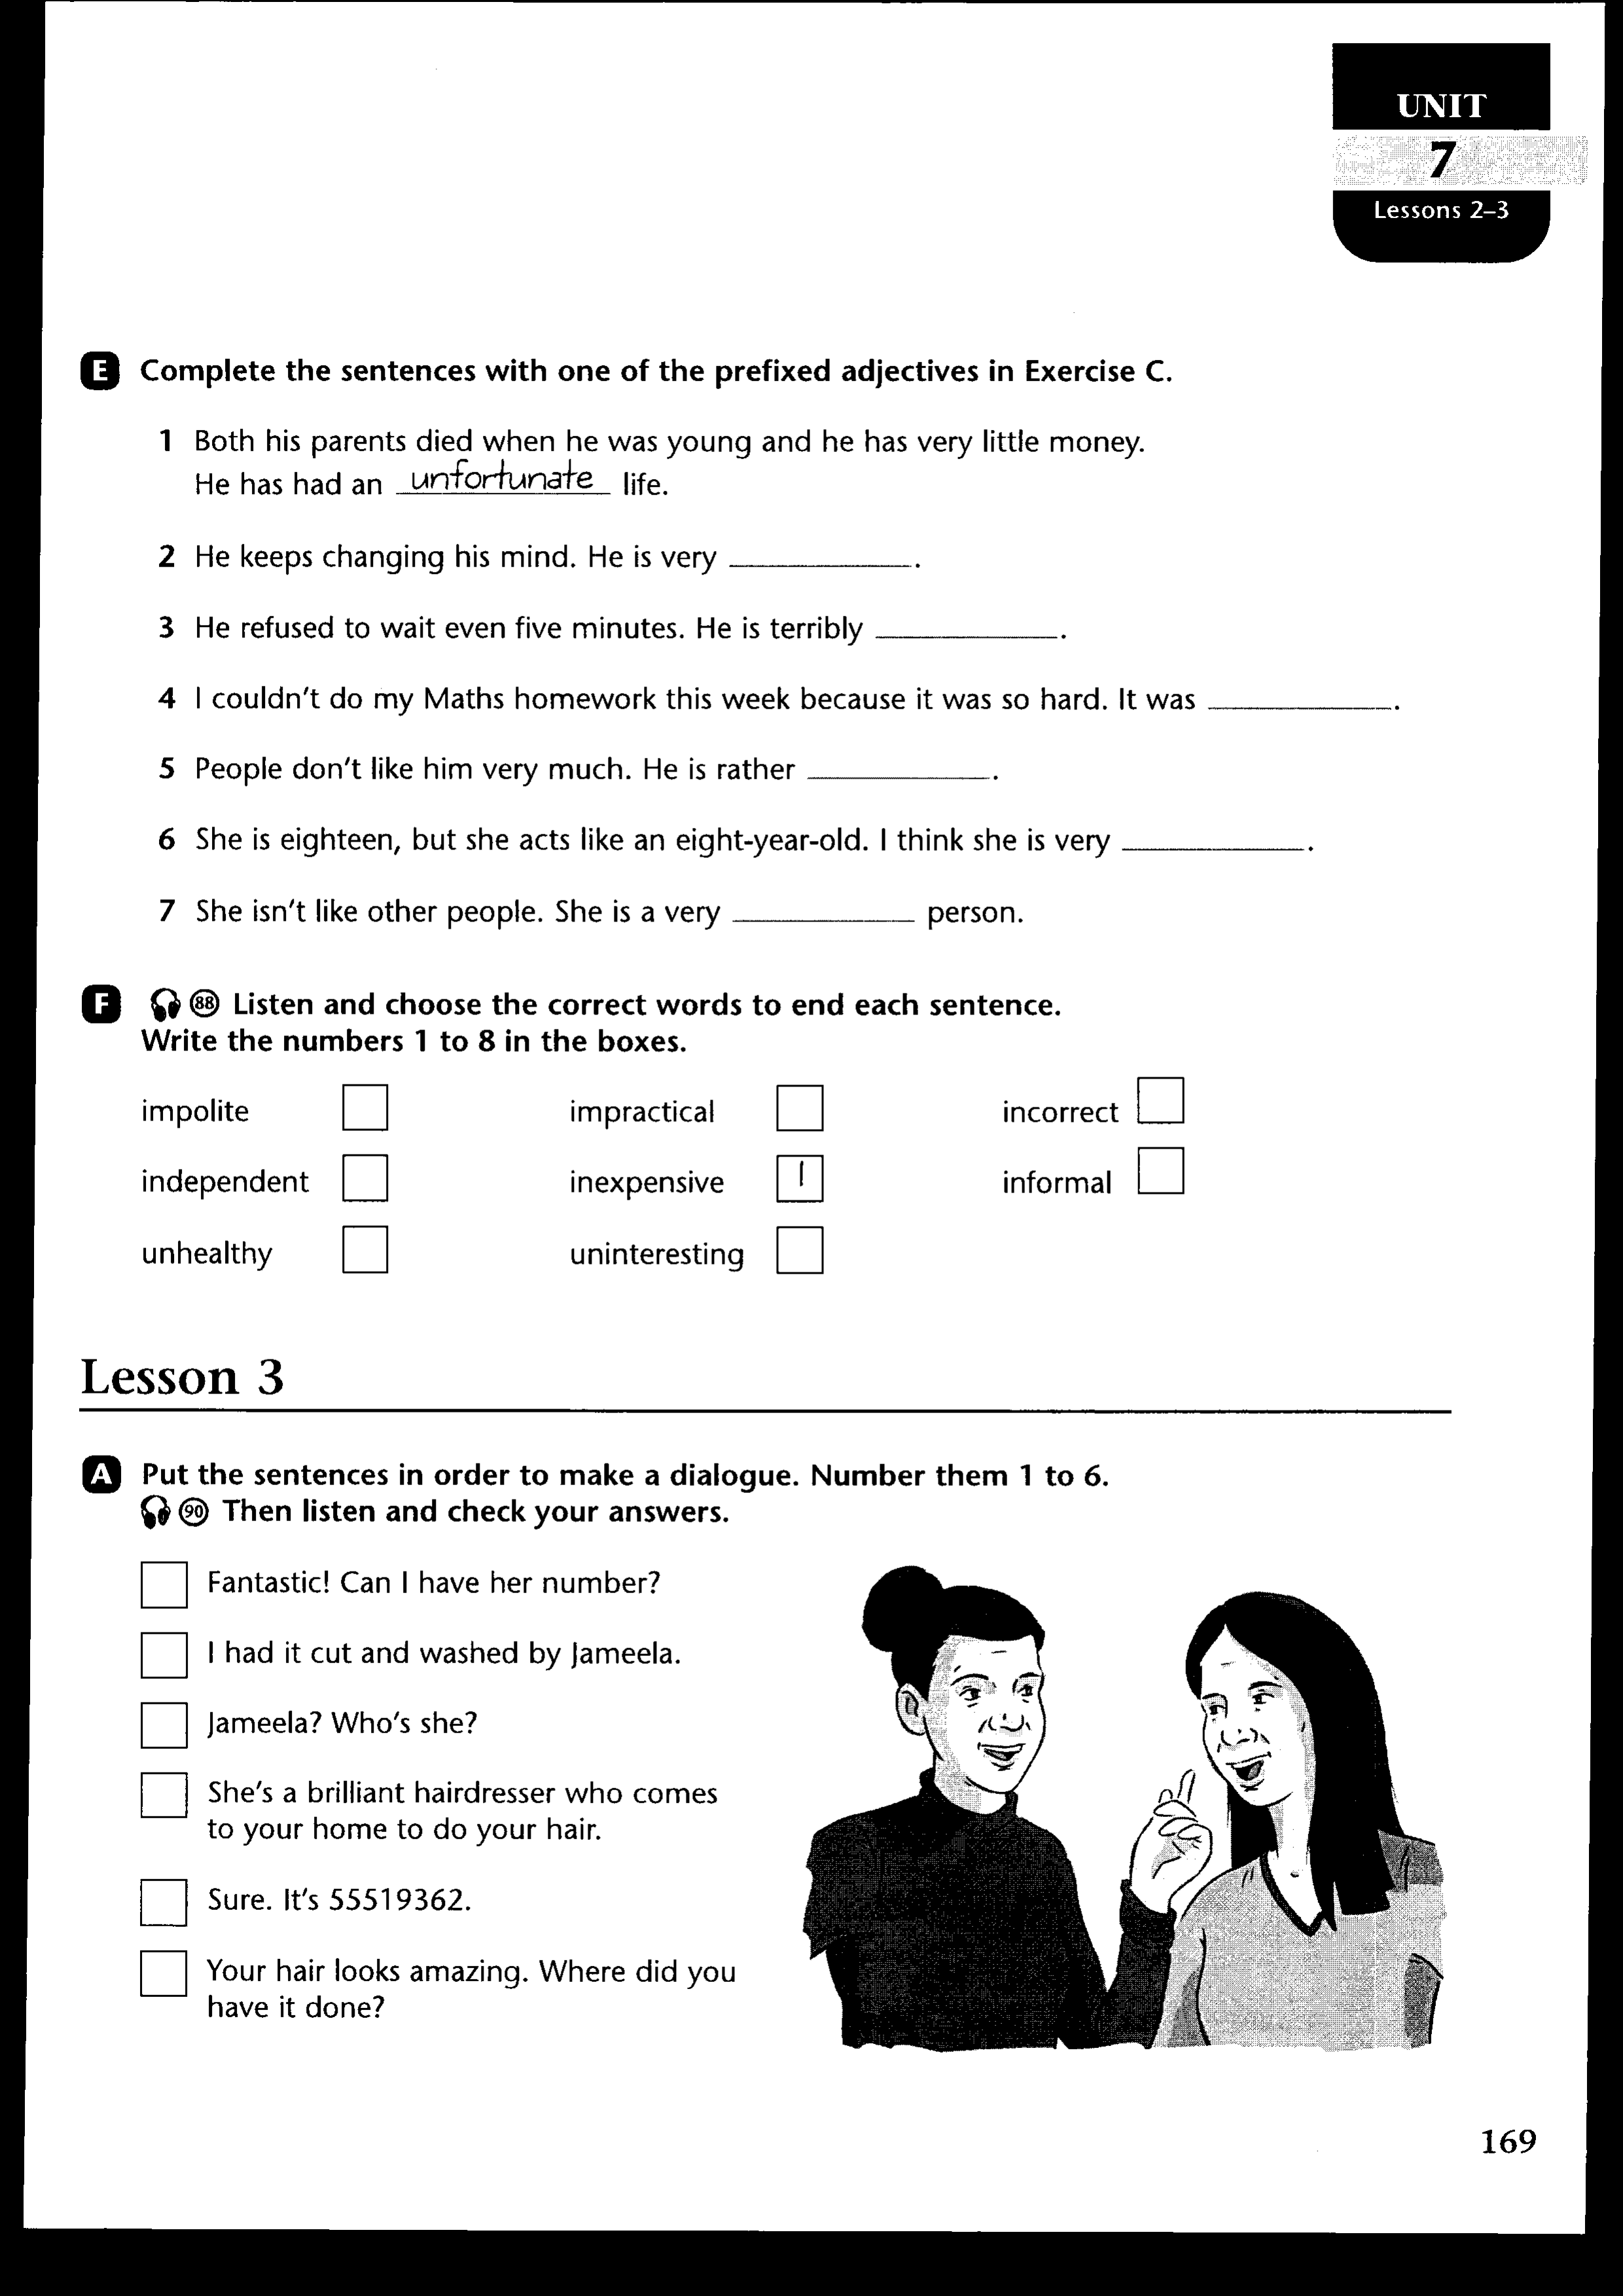 UNIT
7
Lessons 2–3
E Complete the sentences with one of the prefixed adjectives in Exercise C.
1 Both his parents died when he was young and he has very little money.
He has had an unfortunate life.
2 He keeps changing his mind. He is very ____________.
3 He refused to wait even five minutes. He is terribly ____________.
4 I couldn't do my Maths homework this week because it was so hard. It was ____________.
5 People don't like him very much. He is rather ____________.
6 She is eighteen, but she acts like an eight-year-old. I think she is very ____________.
7 She isn't like other people. She is a very ____________ person.
F 88 Listen and choose the correct words to end each sentence.
Write the numbers 1 to 8 in the boxes.
impolite impractical incorrect
independent inexpensive 1 informal
unhealthy uninteresting
Lesson 3
A Put the sentences in order to make a dialogue. Number them 1 to 6.
90 Then listen and check your answers.
Fantastic! Can I have her number?
I had it cut and washed by Jameela.
Jameela? Who's she?
She's a brilliant hairdresser who comes
to your home to do your hair.
Sure. It's 55519362.
Your hair looks amazing. Where did you
have it done?
169